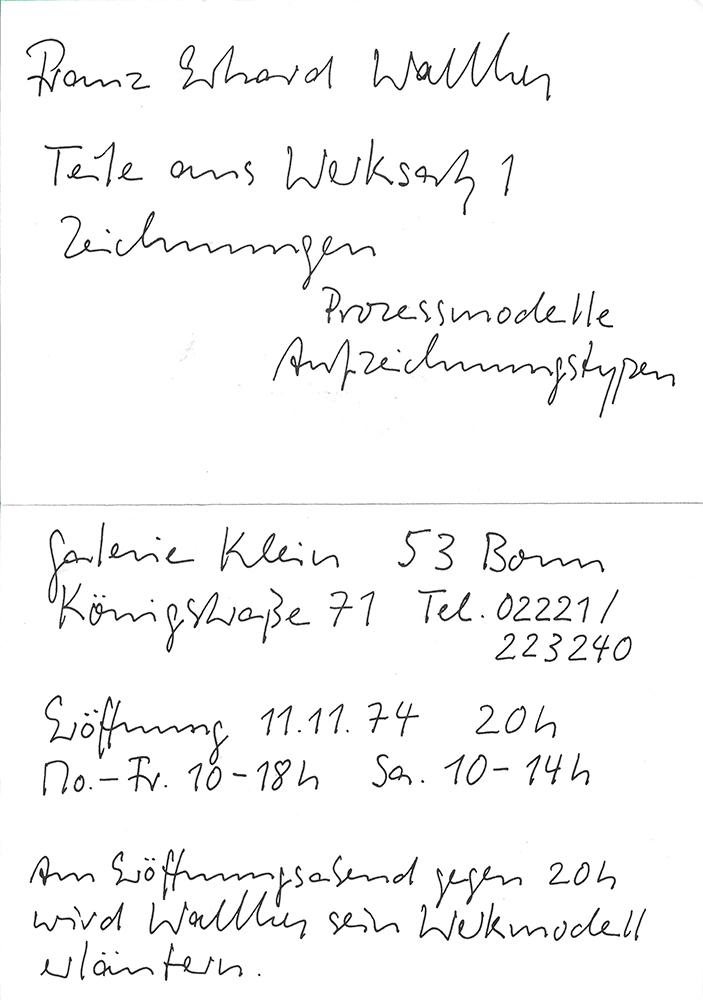 Franz Erhard Walther
Teile aus Werksatz 1
Zeichnungen
Prozessmodelle
Aufzeichnungstypen
Galerie Klein 53 Bonn
Königstraße 71 Tel. 02221/
223240
Eröffnung 11.11.74 20h
Mo.-Fr. 10-18h Sa. 10-14h
Am Eröffnungsabend gegen 20h
wird Walther sein Werkmodell
erläutern.